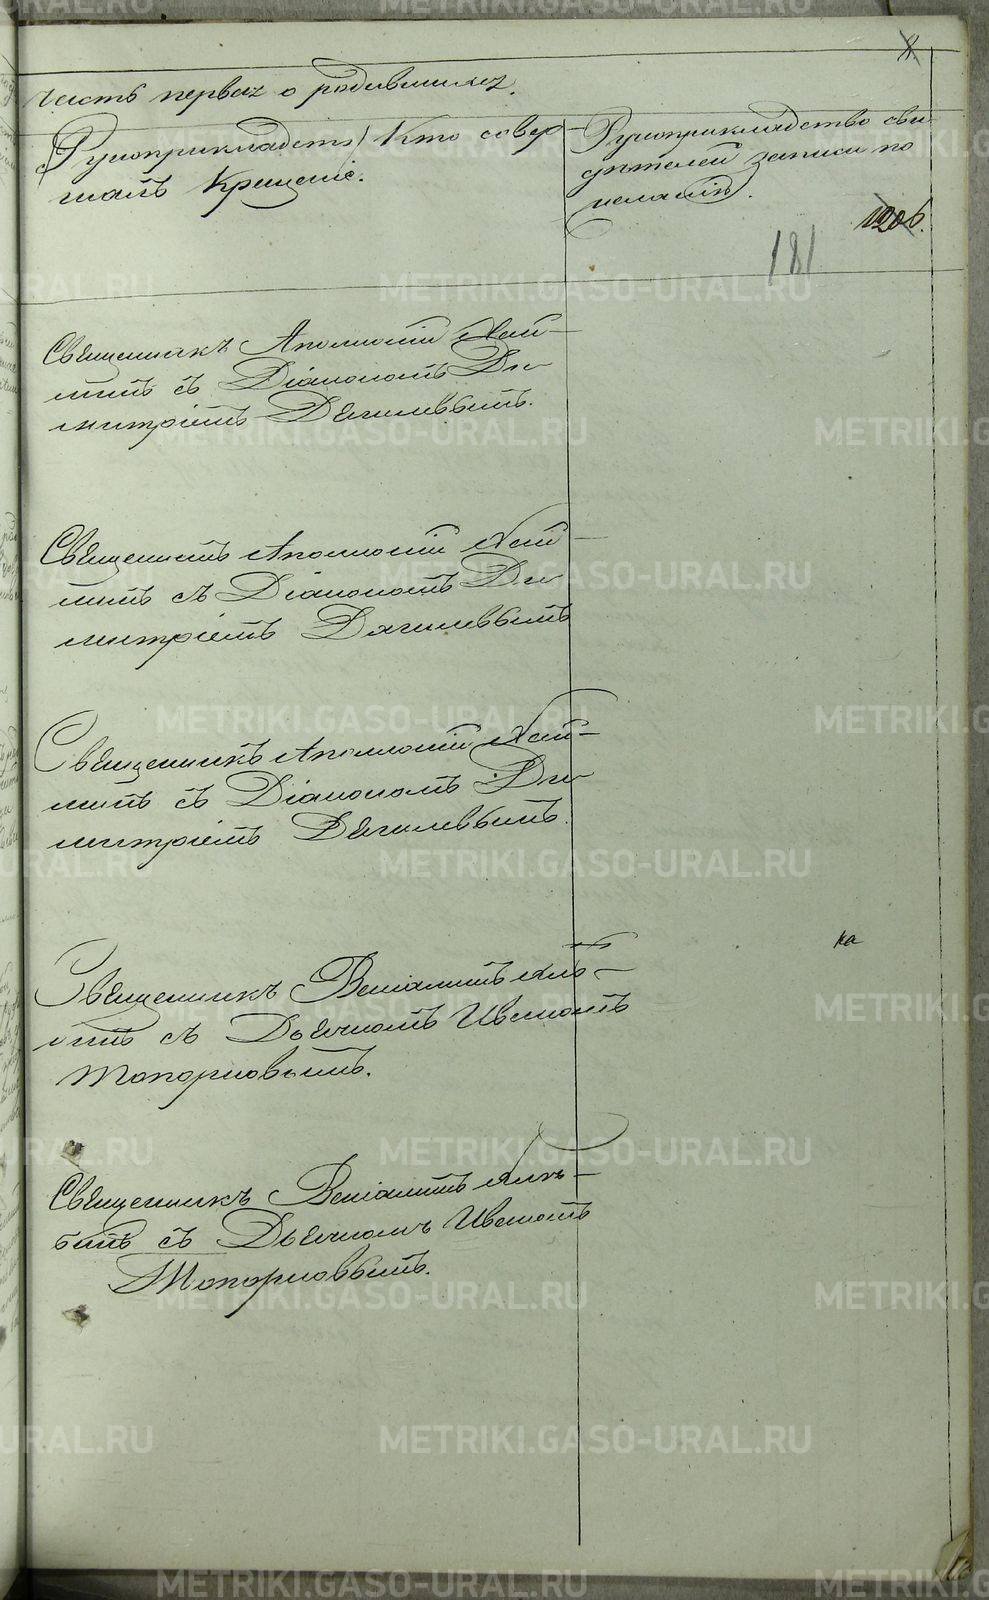 8
часть первая о родившихся.
Рукоприкладств) Кто совер
шалъ Крещеніе.
Рукоприкладство сви
дѣтелей записи по
желанію.
120б.
181
Священникъ Аполлоній
съ Діакономъ Ди
митріемъ Дягилевымъ.
Священникъ Аполлоній
съ Діакономъ Ди
митріемъ Дягилевымъ
Священникъ Аполлоній
съ Діакономъ Ди
митріемъ Дягилевымъ.
ка
Священникъ Веніаминъ
съ Дьячкомъ Иваномъ
Топорковымъ.
Священникъ Веніаминъ
съ Дьячкомъ Иваномъ
Топорковымъ.
METRIKI.GASO-URAL.RU